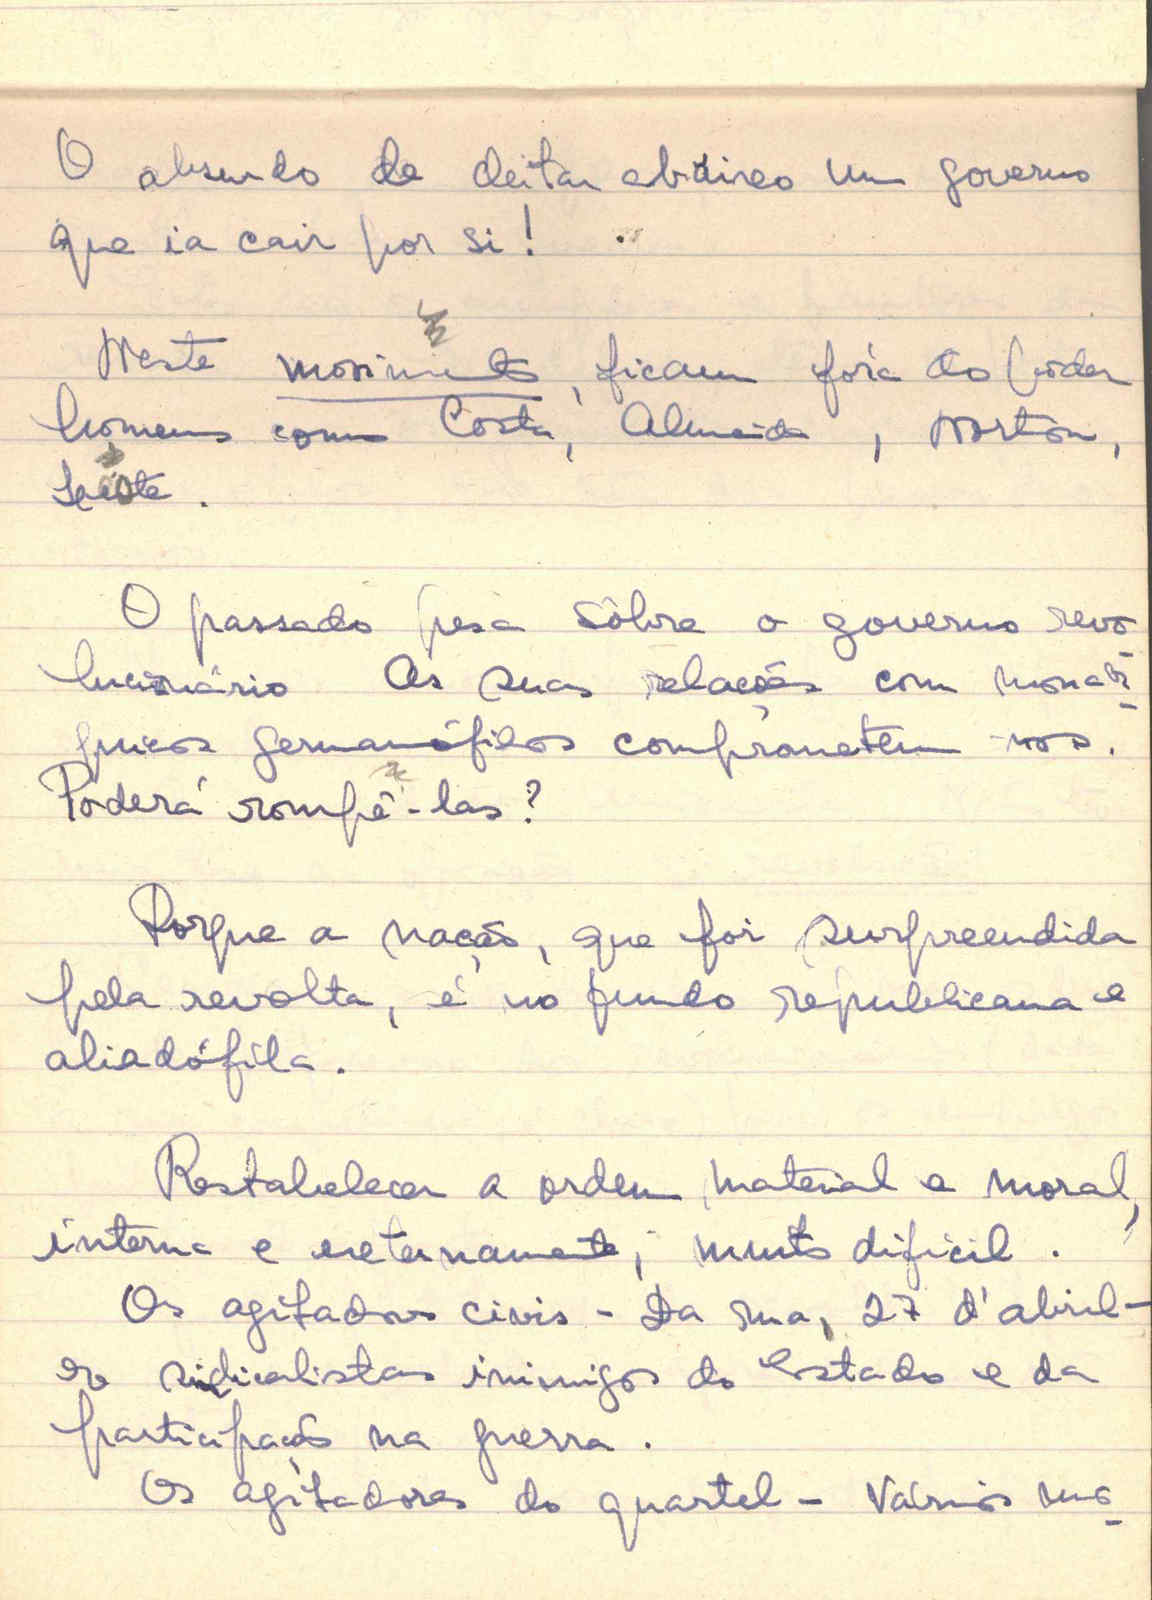 O absurdo de deitar abaixo um governo
que ia cair por si!
Neste movimento, ficam fora do poder
homens como Costa, Almeida, Norton,
Leote.
O passado pesa sôbre o governo revo-
lucionário As suas relações com monár-
quicos germanófilos comprometem-nos.
Poderá rompê-las?
Porque a nação, que foi surpreendida
pela revolta, é no fundo republicana e
aliadófila.
Restabelecer a ordem material e moral,
interna e externamente, muito dificil.
Os agitadores civis - Da rua, 27 d'abril -
sindicalistas inimigos do Estado e da
participação na guerra.
Os agitadores do quartel - Vários